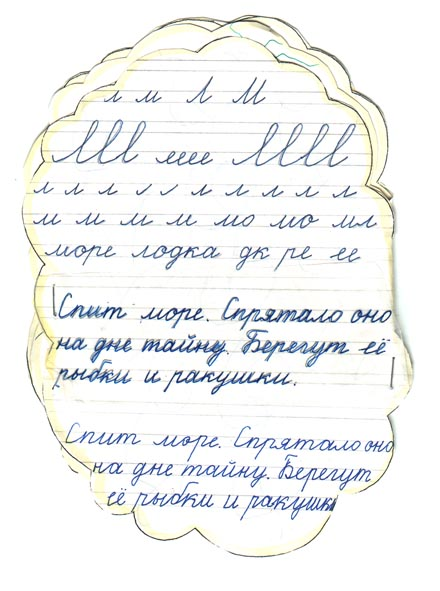 л м Л М
Лll еее Лlll
л л л л л л л л л
м м м м мо мо мл
море лодка дк ре ее
Спит море. Спрятало оно
на дне тайну. Берегут её
рыбки и ракушки.
Спит море. Спрятало оно
на дне тайну. Берегут
её рыбки и ракушки